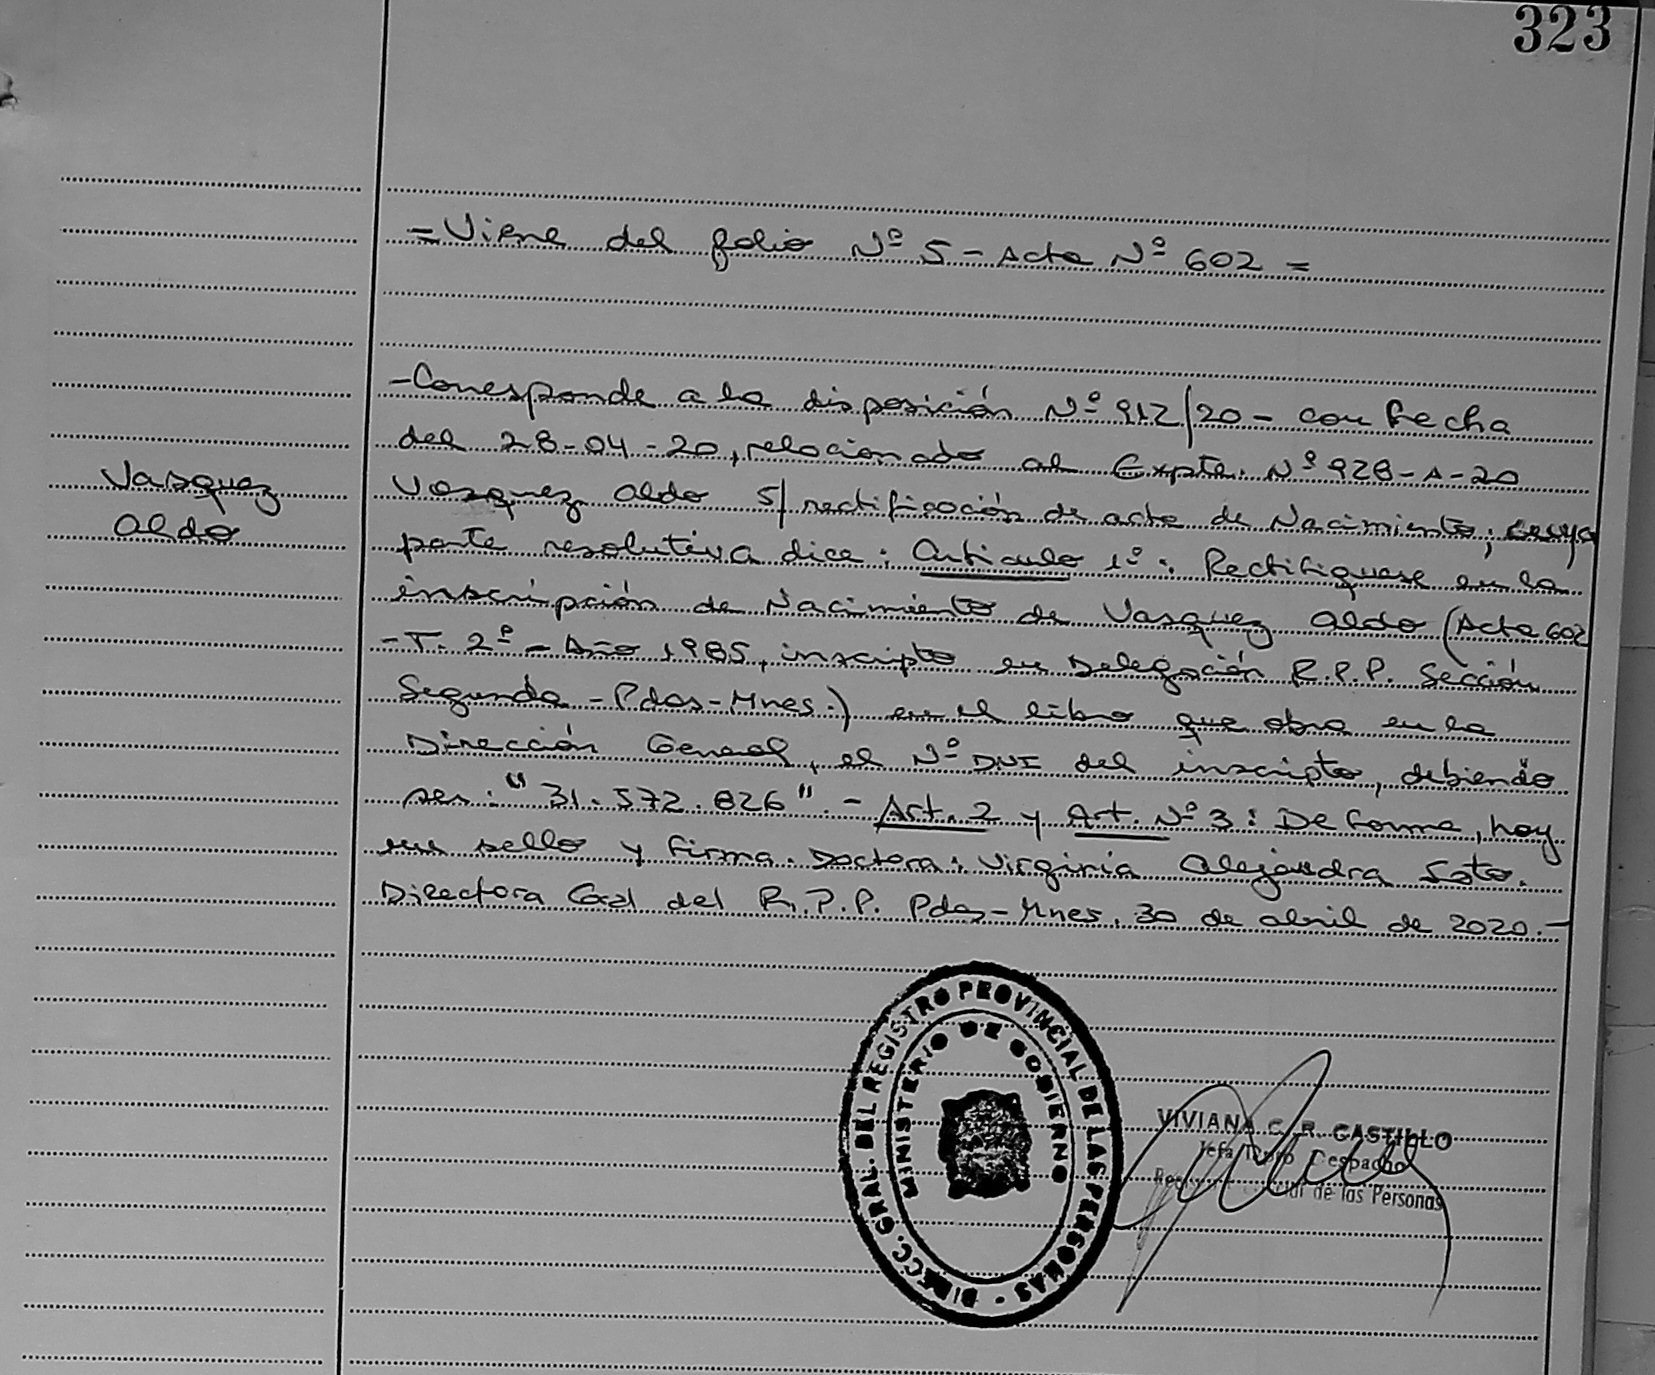 323
= Viene del folio Nº 5 - Acta Nº 602 =
- Corresponde a la disposición Nº 912/20 - con fecha
del 28-04-20, relacionado al Expte. Nº 928-A-20
Vasquez
Aldo
Vasquez Aldo S/ rectificación de acta de Nacimiento; cuya
parte resolutiva dice: Artículo 1º: Rectifiquese en la
inscripción de Nacimiento de Vasquez Aldo (Acta 602
- T. 2º - Año 1985, inscripto en Delegación R.P.P. Sección
Segunda - Pdas - Mnes.) en el libro que obra en la
Dirección General, el Nº DNI del inscripto, debiendo
ser: "31.572.826" - Art. 2 y Art. Nº 3: De forma, hay
un sello y firma. Doctora: Virginia Alejandra Soto.
Directora Gral del R.P.P. Pdas - Mnes, 30 de abril de 2020.-
DIRECC. GRAL. DEL REGISTRO PROVINCIAL DE LAS PERSONAS -
MINISTERIO DE GOBIERNO
VIVIANA C. R. CASTILLO
Jefa Dpto Despacho
de las Personas